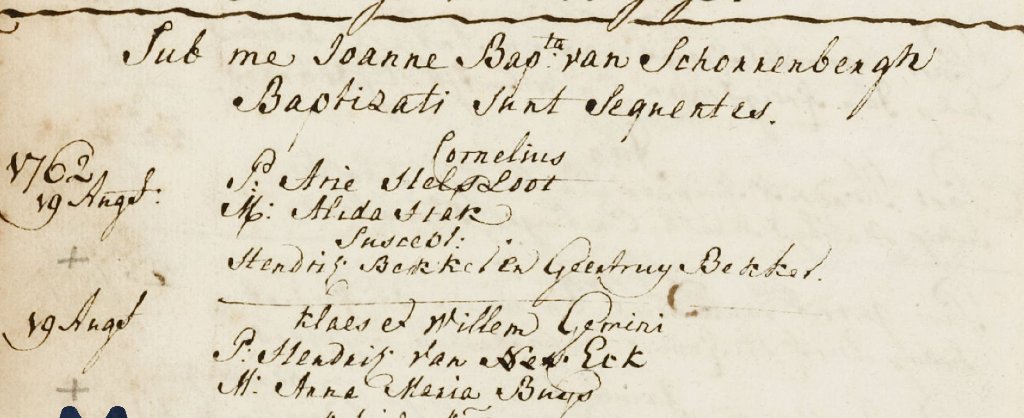 Sub me Joanne Bap:ta van Schonnenbergh
Baptizati sunt sequentes.
Cornelius
1762
P: Arie Helsloot
19 Augst:
M: Alida Stak
Suscept:
Hendrik Bekkel en Geertruy Bekkel.
19 Augst
Klaes et Willem Gemini
P: Hendrik Van Eck
M: Anna Maria Buys